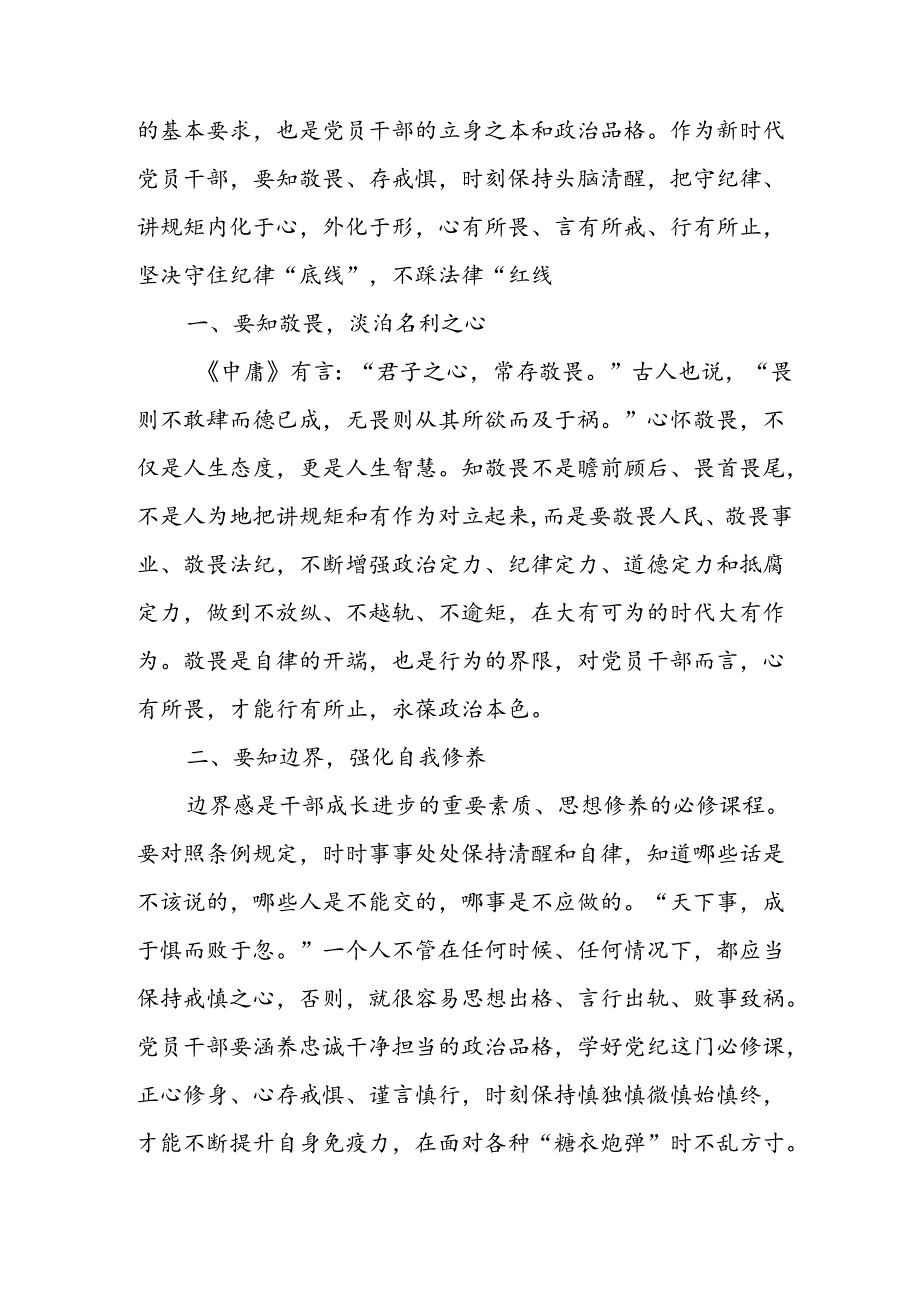 的基本要求，也是党员干部的立身之本和政治品格。作为新时代
党员干部，要知敬畏、存戒惧，时刻保持头脑清醒，把守纪律、
讲规矩内化于心，外化于形，心有所畏、言有所戒、行有所止，
坚决守住纪律“底线”，不踩法律“红线
一、要知敬畏，淡泊名利之心
《中庸》有言：“君子之心，常存敬畏。”古人也说，“畏
则不敢肆而德已成，无畏则从其所欲而及于祸。”心怀敬畏，不
仅是人生态度，更是人生智慧。知敬畏不是瞻前顾后、畏首畏尾，
不是人为地把讲规矩和有作为对立起来，而是要敬畏人民、敬畏事
业、敬畏法纪，不断增强政治定力、纪律定力、道德定力和抵腐
定力，做到不放纵、不越轨、不逾矩，在大有可为的时代大有作
为。敬畏是自律的开端，也是行为的界限，对党员干部而言，心
有所畏，才能行有所止，永葆政治本色。
二、要知边界，强化自我修养
边界感是干部成长进步的重要素质、思想修养的必修课程。
要对照条例规定，时时事事处处保持清醒和自律，知道哪些话是
不该说的，哪些人是不能交的，哪事是不应做的。“天下事，成
于惧而败于忽。”一个人不管在任何时候、任何情况下，都应当
保持戒慎之心，否则，就很容易思想出格、言行出轨、败事致祸。
党员干部要涵养忠诚干净担当的政治品格，学好党纪这门必修课，
正心修身、心存戒惧、谨言慎行，时刻保持慎独慎微慎始慎终，
才能不断提升自身免疫力，在面对各种“糖衣炮弹”时不乱方寸。